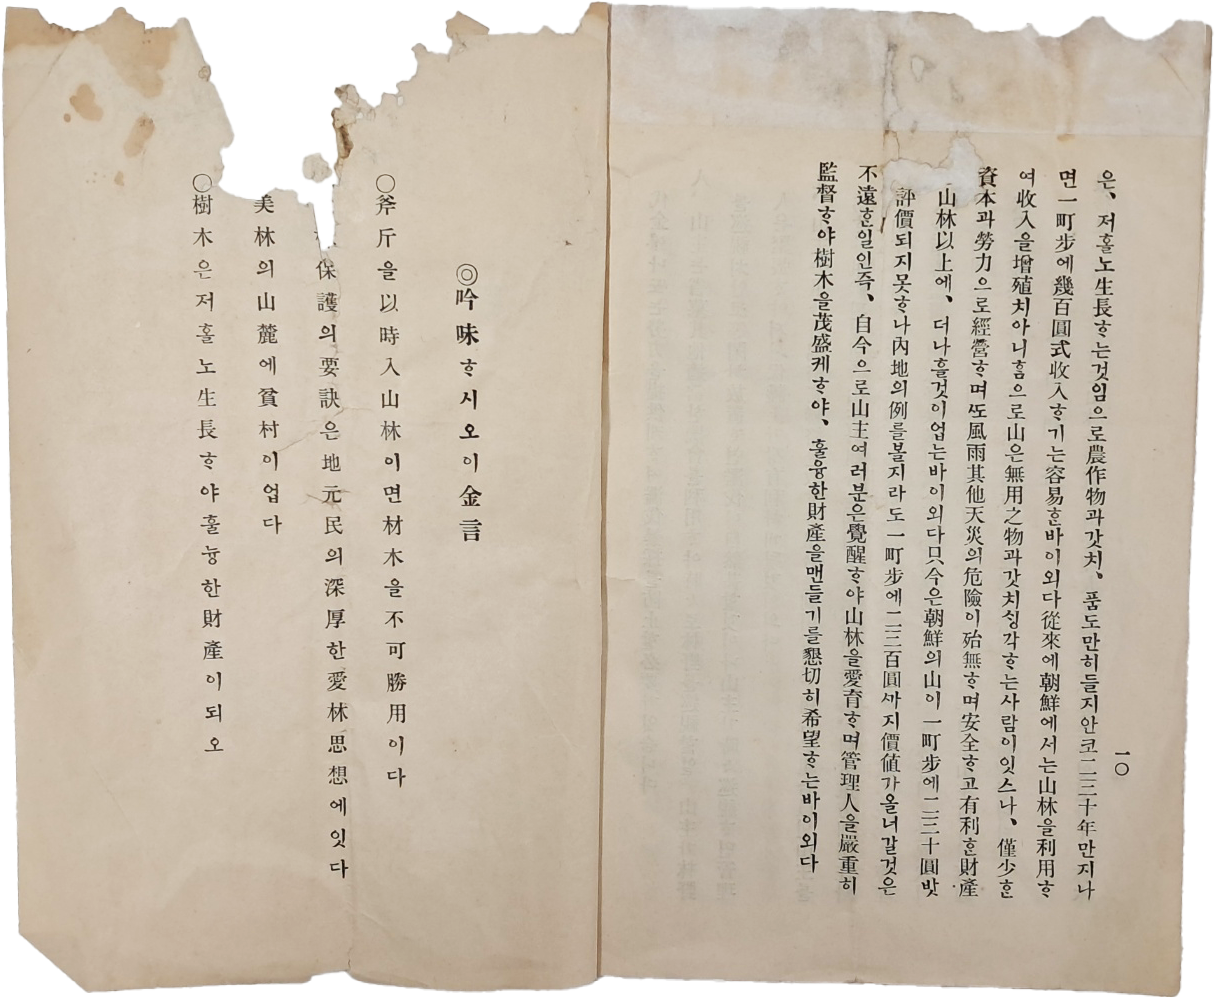 一〇
은、저홀노生長ᄒᆞ는것임으로農作物과갓치、품도만히들지안코二三十年만지나
면一町步에幾百圓式收入ᄒᆞ기는容易ᄒᆞᆫ바이외다從來에朝鮮에서는山林을利用ᄒᆞ
여收入을增殖치아니ᄒᆞᆷ으로山은無用之物과갓치ᄉᆡᆼ각ᄒᆞ는사람이잇스나、僅少ᄒᆞᆫ
資本과勞力으로經營ᄒᆞ며ᄯᅩ風雨其他天災의危險이殆無ᄒᆞ며安全ᄒᆞ고有利ᄒᆞᆫ財產
山林以上에、더나흘것이업는바이외다只今은朝鮮의山이一町步에二三十圓밧
評價되지못ᄒᆞ나內地의例를볼지라도一町步에二三百圓ᄭᅡ지價値가올너갈것은
不遠ᄒᆞᆫ일인즉、自今으로山主여러분은覺醒ᄒᆞ야山林을愛育ᄒᆞ며管理人을嚴重히
監督ᄒᆞ야樹木을茂盛케ᄒᆞ야、훌융한財產을맨들기를懇切히希望ᄒᆞ는바이외다
◎吟味ᄒᆞ시오이金言
○斧斤을以時入山林이면材木을不可勝用이다
保護의要訣은地元民의深厚한愛林思想에잇다
美林의山麓에貧村이업다
○樹木은저홀노生長ᄒᆞ야훌늉한財產이되오